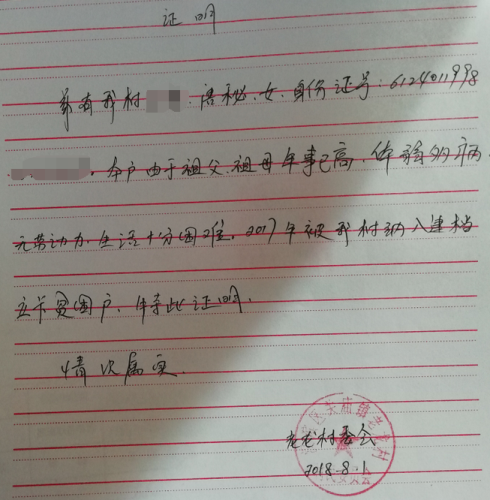 证明
兹有我村 女、身份证号:6124011998
本户由于祖父、祖母年事已高、体弱多病
无劳动力、生活十分困难,2017年被我村纳入建档
立卡贫困户,特此证明.
情况属实.
村委会
2018.8.1